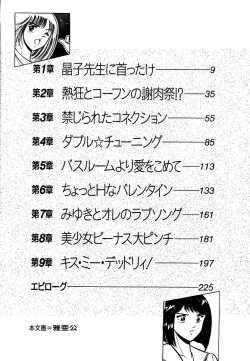 第1章 晶子先生に首ったけ 9
第2章 熱狂とコーフンの謝肉祭!? 35
第3章 禁じられたコネクション 55
第4章 ダブル☆チューニング 85
第5章 バスルームより愛をこめて 113
第6章 ちょっとHなバレンタイン 133
第7章 みゆきとオレのラブソング 161
第8章 美少女ビーナス大ピンチ 181
第9章 キス・ミー・デッドリィ! 197
エピローグ 225
本文画=雅亜公